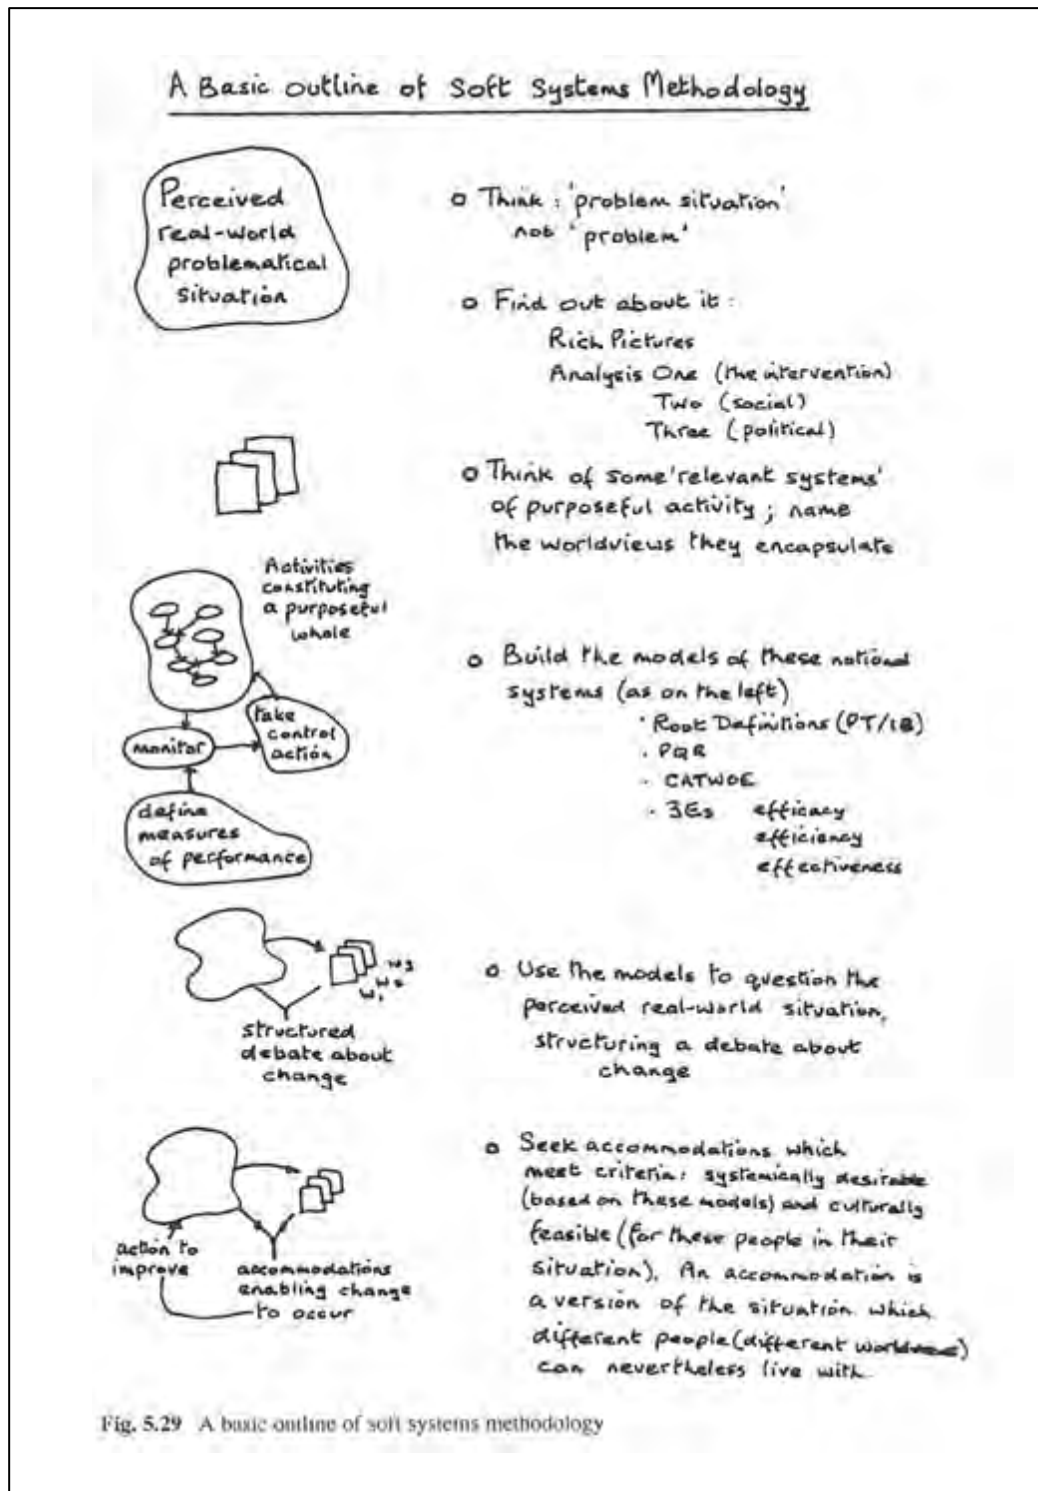 A Basic outline of Soft Systems Methodology
Perceived
real-world
problematical
situation
o Think : 'problem situation'
not 'problem'
o Find out about it :
Rich Pictures
Analysis One (the intervention)
Two (social)
Three (political)
o Think of some 'relevant systems'
of purposeful activity ; name
the worldviews they encapsulate
Activities
constituting
a purposeful
whole
take
control
action
monitor
define
measures
of performance
o Build the models of these notional
systems (as on the left)
· Root Definitions (PT/IB)
· PQR
· CATWOE
· 3Es efficacy
efficiency
effectiveness
W3
W2
W1
structured
debate about
change
o Use the models to question the
perceived real-world situation,
structuring a debate about
change
action to
improve
accommodations
enabling change
to occur
o Seek accommodations which
meet criteria: systemically desirable
(based on these models) and culturally
feasible (for these people in their
situation). An accommodation is
a version of the situation which
different people (different
can nevertheless live with
Fig. 5.29 A basic outline of soft systems methodology